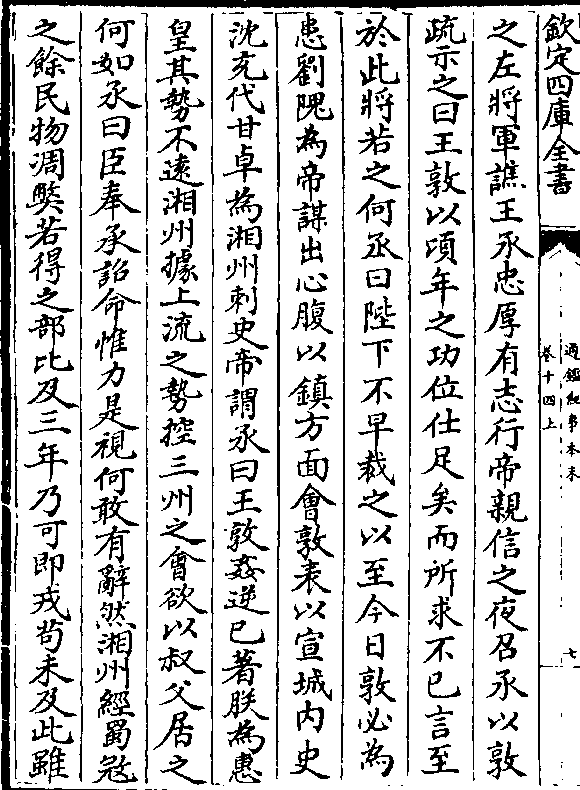 欽定四庫全書
通鑑紀事本末
卷十四上
七
之左將軍譙王氶忠厚有志行帝親信之夜召氶以敦
疏示之曰王敦以頃年之功位仕足矣而所求不已言至
於此將若之何氶曰陛下不早裁之以至今日敦必為
患劉隗為帝謀出心腹以鎮方面會敦表以宣城内史
沈充代甘卓為湘州刺史帝謂氶曰王敦姦逆已著朕為惠
皇其勢不遠湘州據上流之勢控三州之會欲以叔父居之
何如氶曰臣奉承詔命惟力是視何敢有辭然湘州經蜀寇
之餘民物凋弊若得之部比及三年乃可即戎苟未及此雖